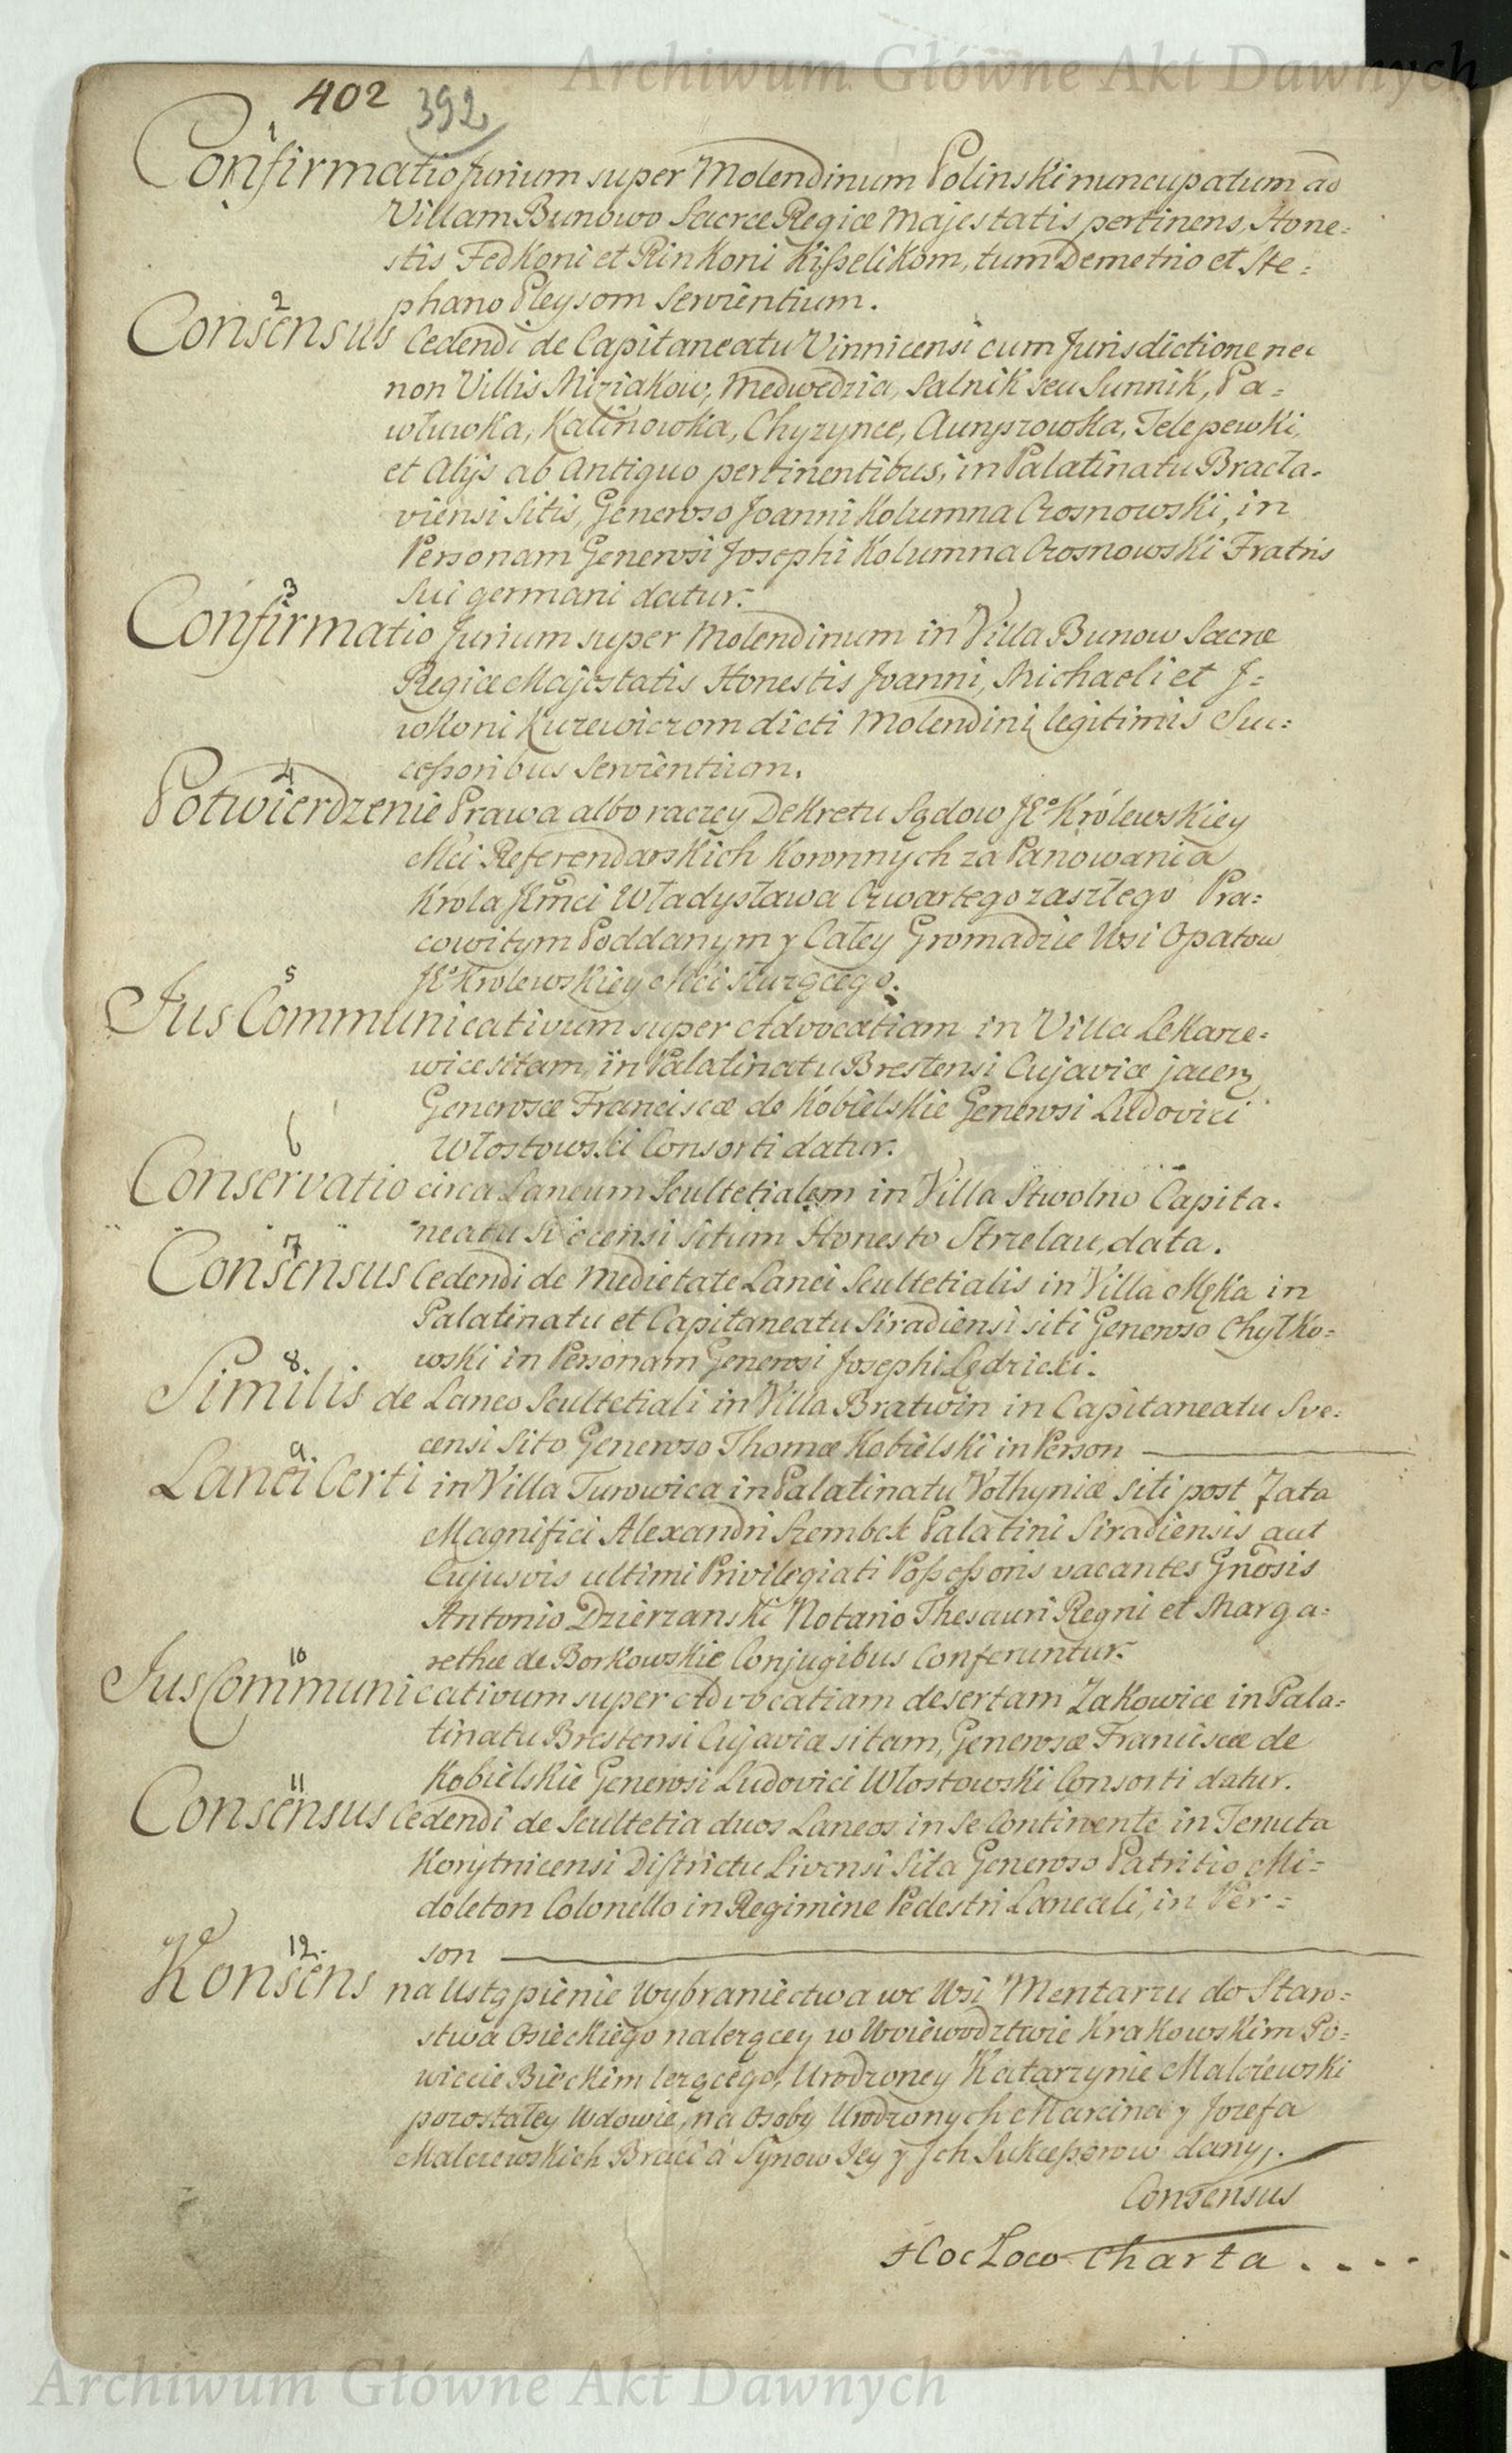 Archiwum Główne Akt Dawnych
402 392
1
Confirmatio Jurium super Molendinum Polinski nuncupatum ad
Villam Bunowo Sacræ Regiæ Majestatis pertinens, Hone=
stis Fedkoni et Rinkoni Kisselikom, tum Demetrio et Ste=
phano Pleysom Servientium.
2
Consensus Cedendi de Capitaneatu Vinnicensi cum Jurisdictione nec
non Villis Miziakow, Medwedzia, Salnik seu Sunnik, Pa=
włuwka, Kalinowka, Chyzynce, Telepewki,
et Alijs ab Antiquo pertinentibus, in Palatinatu Bracła=
viensi Sitis, Generoso Joanni Kolumna Czosnowski, in
Personam Generosi Josephi Kolumna Czosnowski Fratris
Sui germani datur.
3
Confirmatio Jurium super Molendinum in Villa Bunow Sacræ
Regiæ Majestatis Honestis Joanni, Michaeli et J=
wkoni Kuzewiczom dicti Molendini legitimis Suc=
cessoribus Servientium.
4
Potwierdzenie Prawa albo raczey Dekretu Sądow JEº Królewskiey
Mci Referendarskich Koronnych za Panowania
Krola JKmci Władysława Czwartego zaszłego Pra=
cowitym Poddanym y Całey Gromadzie Wsi Opatow
JEº Krolewskiey Mci służącego.
5
Jus Communicativum super Advocatiam in Villa Lekarze=
wice sitam, in Palatinatu Brestensi Cujaviæ jacen
Generosæ Franciscæ de Kobielskie Generosi Ludovici
Włostowski Consorti datur.
6
Conservatio circa Laneum Scultetialem in Villa Stwolno Capita=
neatu Svecensi situm Honesto Strzelau, data.
7
Consensus Cedendi de Medietate Lanei Scultetialis in Villa Męka in
Palatinatu et Capitaneatu Siradiensi siti Generoso Chylko=
wski in Personam Generosi Josephi Lędzicki.
8.
Similis de Laneo Scultetiali in Villa Bratwin in Capitaneatu Sve=
censi Sito Generoso Thomæ Kobielski in Person
9
Lanei Certi in Villa Turowica in Palatinatu Volhyniæ siti post Fata
Magnifici Alexandri Szembek Palatini Siradiensis aut
Cujusvis ultimi Privilegiati Possessoris vacantes Gnosis
Antonio Dzierzanski Notario Thesauri Regni et Marga=
rethæ de Borkowskie Conjugibus Conferuntur.
10
Jus Communicativum super Advocatiam desertam Zakowice in Pala=
tinatu Brestensi Cujaviæ sitam, Generosæ Franciscæ de
Kobielskie Generosi Ludovici Włostowski Consorti datur.
11
Consensus Cedendi de Scultetia duos Laneos in se Continente in Tenuta
Korytnicensi Districtu Livensi Sita Generoso Patritio Mi=
doleton Colonello in Regimine Pedestri Laneali, in Per=
son
12.
Konsens na Ustąpienie Wybraniectwa we Wsi Mentarzu do Staro=
stwa Osieckiego należącey w Woiewodztwie Krakowskim Po=
wiecie Bieckim leżącego, Urodzoney Katarzynie Malczewski
pozostałey Wdowie, na Osoby Urodzonych Marcina y Jozefa
Malczewskich Braci a Synow Jey y Jch Sukcessorow dany.
Consensus
Hoc Loco Charta . . . .
Archiwum Główne Akt Dawnych